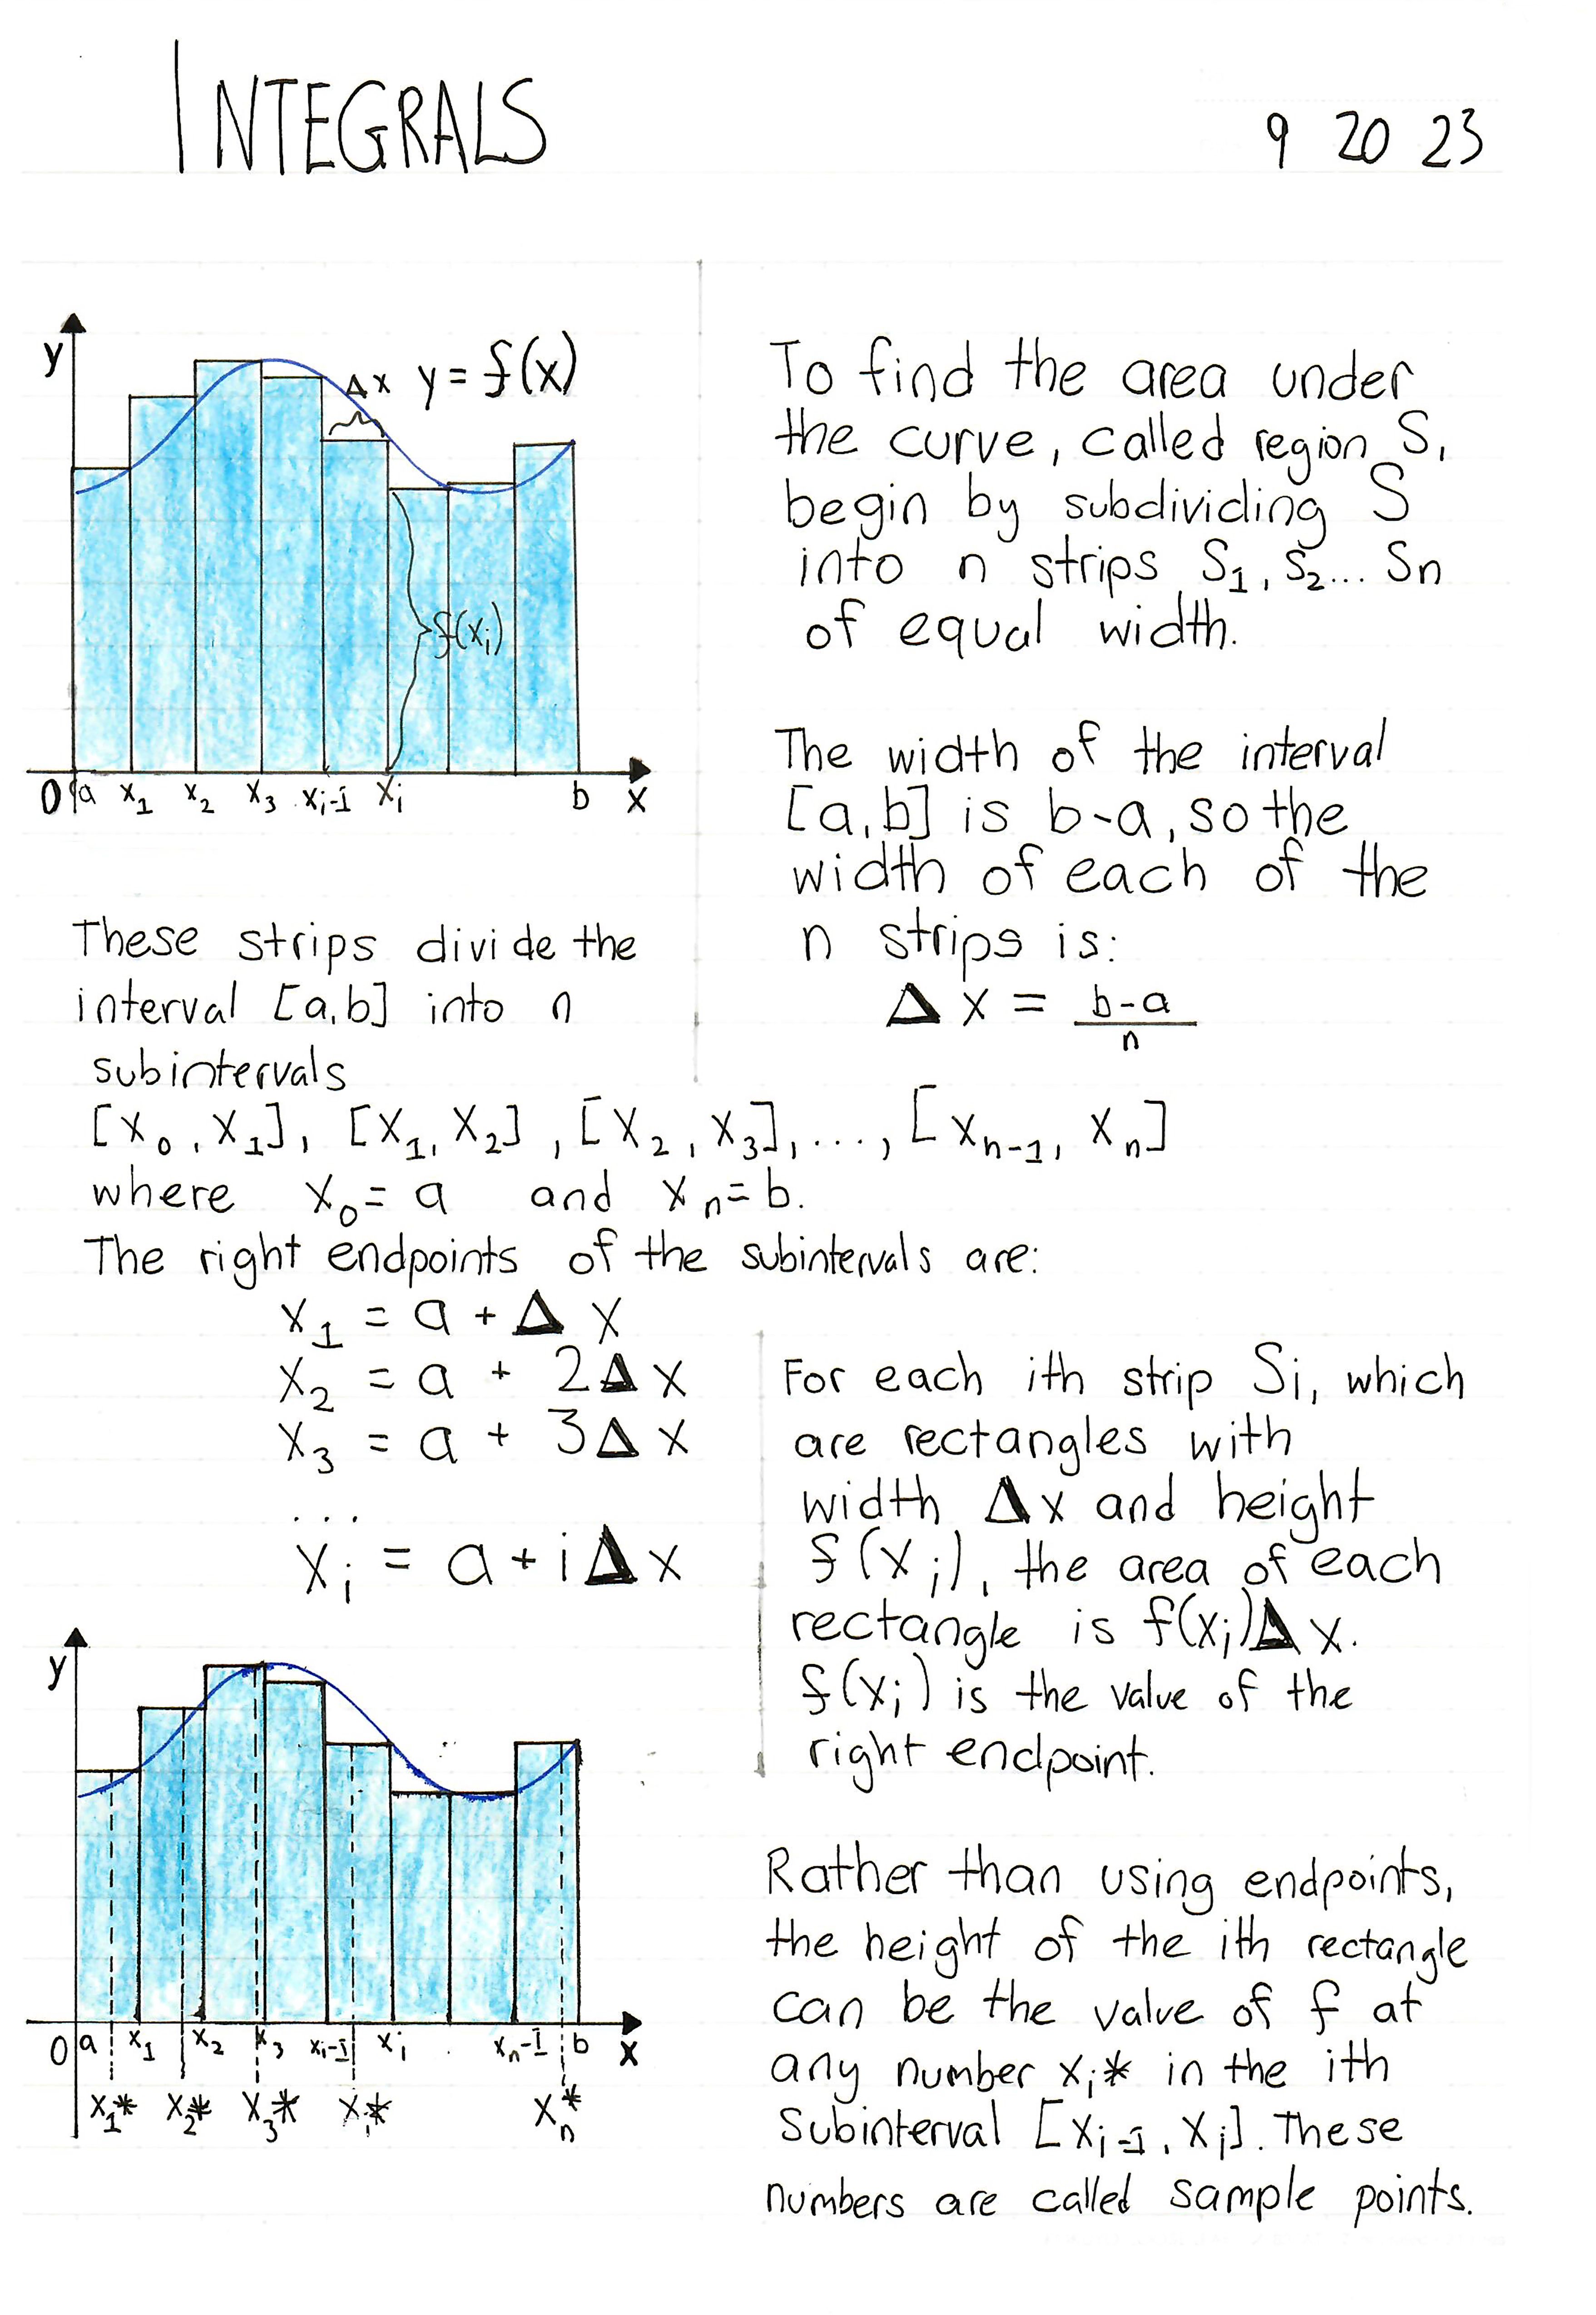 INTEGRALS
9 20 23
y
Δx y = f(x)
f(xᵢ)
0 a x₁ x₂ x₃ xᵢ₋₁ xᵢ b x
To find the area under
the curve, called region S,
begin by subdividing S
into n strips S₁, S₂... Sn
of equal width.
The width of the interval
[a,b] is b-a, so the
width of each of the
n strips is:
Δx = b-a
n
These strips divide the
interval [a,b] into n
subintervals
[x₀, x₁], [x₁, x₂], [x₂, x₃], ..., [xₙ₋₁, xₙ]
where x₀ = a and xₙ = b.
The right endpoints of the subintervals are:
x₁ = a + Δx
x₂ = a + 2Δx
x₃ = a + 3Δx
...
xᵢ = a + iΔx
For each ith strip Si, which
are rectangles with
width Δx and height
f(xᵢ), the area of each
rectangle is f(xᵢ)Δx.
f(xᵢ) is the value of the
right endpoint.
y
0 a x₁ x₂ x₃ xᵢ₋₁ xᵢ xₙ-1 b x
x₁* x₂* x₃* xᵢ* xₙ*
Rather than using endpoints,
the height of the ith rectangle
can be the value of f at
any number xᵢ* in the ith
subinterval [xᵢ₋₁, xᵢ]. These
numbers are called sample points.